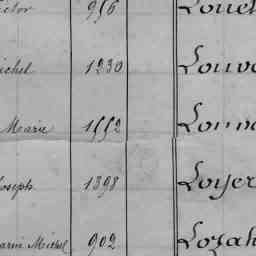 ictor 956 Louet
ichel 1230 Louv
Marie 1552 Lou
Joseph 1398 Loyer
arin Michel 902 Lozah